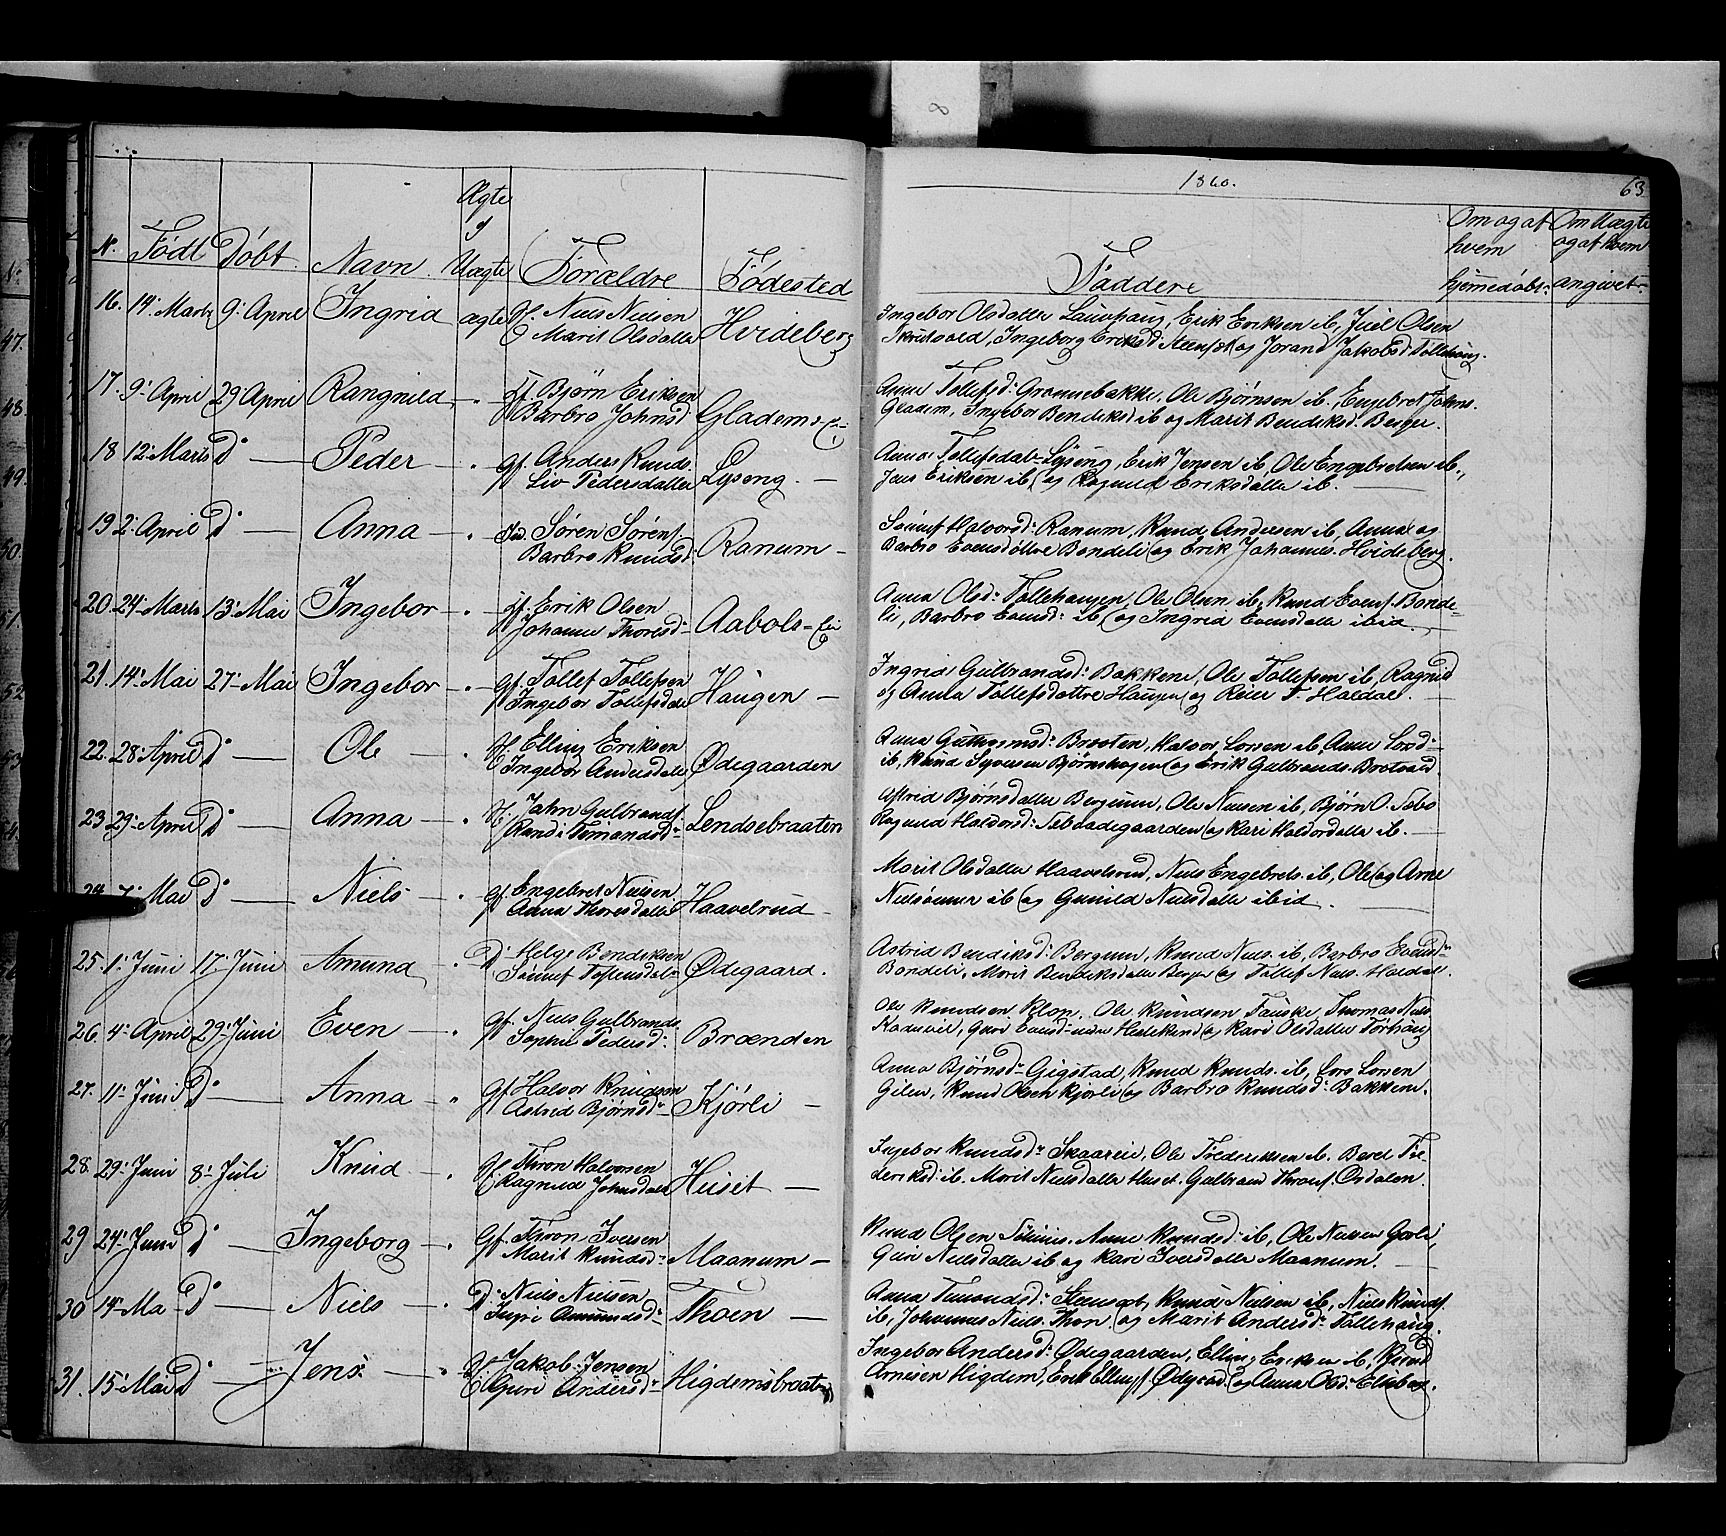 8
1860.
63
Ægte
Uægte
N. Født Døbt Navn Forældre Fødested Faddere
Om og af hvem hjemmedøbt
Om Uægte og af hvem angivet
16. 14 Marts 9. April Ingrid ægte Gf. Niels Nielsen
Marit Olsdatter Hvideberg
Ingebor Olsdatter Lauvhaug, Erik Eriksen ib, Juel Olsen
Ingeborg Eriksd og Jorand Jakobsd Tollehaug.
17. 9. April 29 April Rangnild Gf. Bjørn Eriksen
Barbro Johnsd Gladems
Anna Tollefsd: Grønnebakke, Ole Bjørnsen ib, Engebret Johns.
Gladem, Ingebor Bendiksd ib og Marit Bendiksd. Berger.
18 12. Marts D° Peder Gf. Anders Knuds.
Liv Pedersdatter Lyseng.
Anna Tollefsdatr Lyseng, Erik Jensen ib, Ole Engebretsen ib.,
Jens Eriksen ib, og Ragnild Eriksdatter ib.
19 2. April D° Anna Søren Sørens.
Barbro Knudsd: Ranum
Halvorsd: Ranum, Knud Andersen ib, Anna og
Barbro Evensdøttre Bondeli og Erik Johannes. Hvideberg.
20. 24. Marts 13. Mai Ingebor Gf. Erik Olsen
Johanne Thoresd: Aabols-
Anna Olsd: Tollehaugen, Ole Olsen ib, Knud Evens. Bonde-
li, Barbro Evensd: ib, og Ingrid Evensdatter ibid.
21. 14. Mai 27. Mai Ingebor Gf. Tollef Tollefsen
Ingebor Tollefsdatr Haugen
Ingrid Gulbrandsd: Bakkene, Ole Tollefsen ib, Ragnid
og Anna Tollefsdøttre Haugen og T. Haldal.
22. 28. April D° Ole Gf. Elling Eriksen
Ingebor Andersdatr Ødegaarden
Anna Guthormsd: Braaten, Halvor Larsen ib, Anne Larsd:
ib, Knud Syversen Bjørnshagen og Erik Gulbrands. Brotvald
23 29. April D° Anna Gf. John Gulbrands.
Randi Lendsebraaten
Astrid Bjørnsdatter Bergum, Ole Nielsen ib, Bjørn O. Sæbo
Ragnild Haldord: og Kari Haldordatter ib.
24. 7. Mai D° Niels Gf. Engebret Nielsen
Anna Thoresdatter Haavelrud
Marit Olsdatter Haavelsrud, Niels Engebrets. ib, Ole og Arne
Nielsønner ib og Gunild Nielsdatter ibid.
25. 1. Juni 17. Juni Amund D°. Helge Bendiksen
Ødegaard.
Astrid Bendiksd: Bergum, Knud Niels. ib, Barbro Evensd:
Bondeli, Marit Bendiksdatter Berger og Tollef Niels. Haldal.
26. 4. April 29. Juni Even Gf. Niels Gulbrands.
Sophie Pedersd: Brænden
Ole Knudsen Klop, Ole Knudsen Fauske, Thomas Niels.
Guri Evensd: og Kari Olsdatter Torhaug
27. 11. Juni D° Anna Gf. Halvor Knudsen
Astrid Bjørnsd: Kjørli
Anna Bjørnsd: Gigstad, Knud Knuds. ib, Lars Larsen
Gilen, Knud Olsen Kjørli og Barbro Knudsd: Bakkene.
28. 29. Juni 8. Juli Knud Gf. Thron Halvorsen
Ragnild Johnsdatr Huset
Ingebor Knudsd: Skaarein, Ole Frederiksen ib. Beret Fre-
deriksd: ib. Marit Nielsdatter Huset. Gulbrand Throns. Ørsdalen.
29 24. Juni D° Ingeborg Gf. Thron Iversen
Marit Knudsd: Maanum
Knud Olsen Anne Knudsd: ib, Ole Nielsen
Guri Nielsdatter ib og Kari Iversdatter Maanum.
30 14. Ma D° Niels D° Niels Nielsen
Amundsd: Thoen
Anna Knud Nielsen ib, Niels Knuds.
ib, Johannes Niels. Thon og Marit Andersd: Tollehaug.
31. 15. Mai D° Jens Gf. Jakob Jensen
Guri Andersd: Higdemsbraaten
Ingebor Andersd: Ødegaarden, Elling Eriksen ib, Knud
Arnesen Higdem, Erik Ellings. Ødegrd. og Anna Olsd: